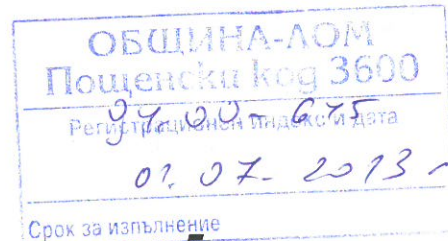 ОБЩИНА-ЛОМ
Пощенски код 3600
Регистрационен индекс и дата
94.00-675
01.07.2013 г
Срок за изпълнение